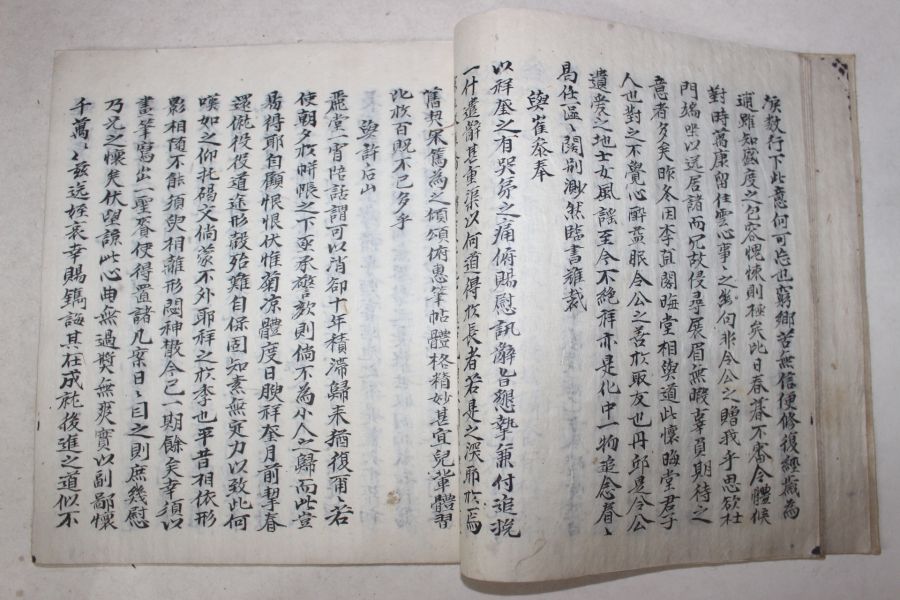 淚數行下此意何可忘也窮鄕苦無信便修復經歲爲
逋雖知盛度之包容愧悚則極矣此日春暮不審令體候
對時萬康留住雲心事〻之幾句非令公之贈我乎思欲杜
門塊坐以送居諸而冗故侵尋展眉無暇辜負期待之
意者多矣昨冬因李直閣晦堂相與道此懷晦堂君子
人也對之不覺心醉益服令公之善於取友也丹邱是令公
遺愛之地士女風謠至今不絶拜亦是化中一物追念眷〻
曷任區〻闊別渺然臨書難裁
與崔參奉
以拜奎之有哭旁之痛俯賜慰訊辭旨懇摯兼付追挽
一什遣辭甚重渠以何道得於長者若是之深耶於焉
舊契采篤爲之傾頌俯惠筆帖體格精妙甚宜兒輩體習
此於百貺不已多乎
與許后山
麗堂一宵陪話謂可以消却十年積滯歸來猶復爾若
使朝夕於帡帳之下亟承警欬則倘不爲小人之歸而此豈
易得耶自顧恨恨伏惟菊凉體度日腴拜奎月前挈眷
還僦役役道途形殼殆難自保固知素無定力以致此何
嘆如之仰托碣文倘蒙不外耶拜之於季也平昔相依形
影相隨不能須臾相離形閟神散今已一期餘矣幸須以
畫筆寫出一聖胥使得置諸几案日〻目之則庶幾慰
乃兄之懷矣伏望諒此心曲無過奬無爽實以副鄙懷
千萬〻玆送姪哀幸賜鐫誨其在成就後進之道似不